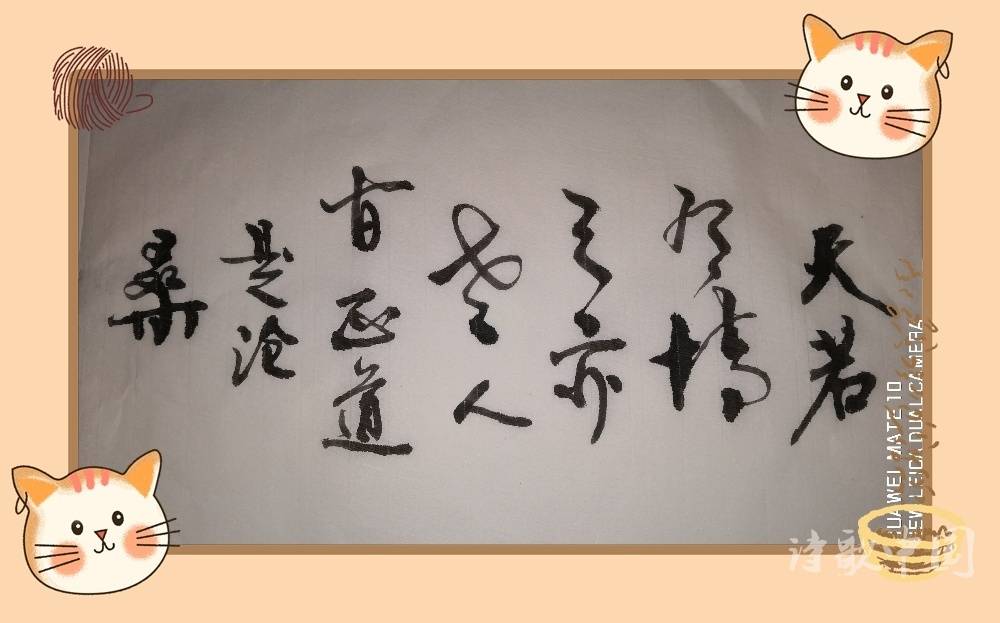 天若
有情
天亦
老人
间正道
是沧
桑
HUAWEI MATE 10
NEW LEICA DUAL CAMERA
诗歌中国